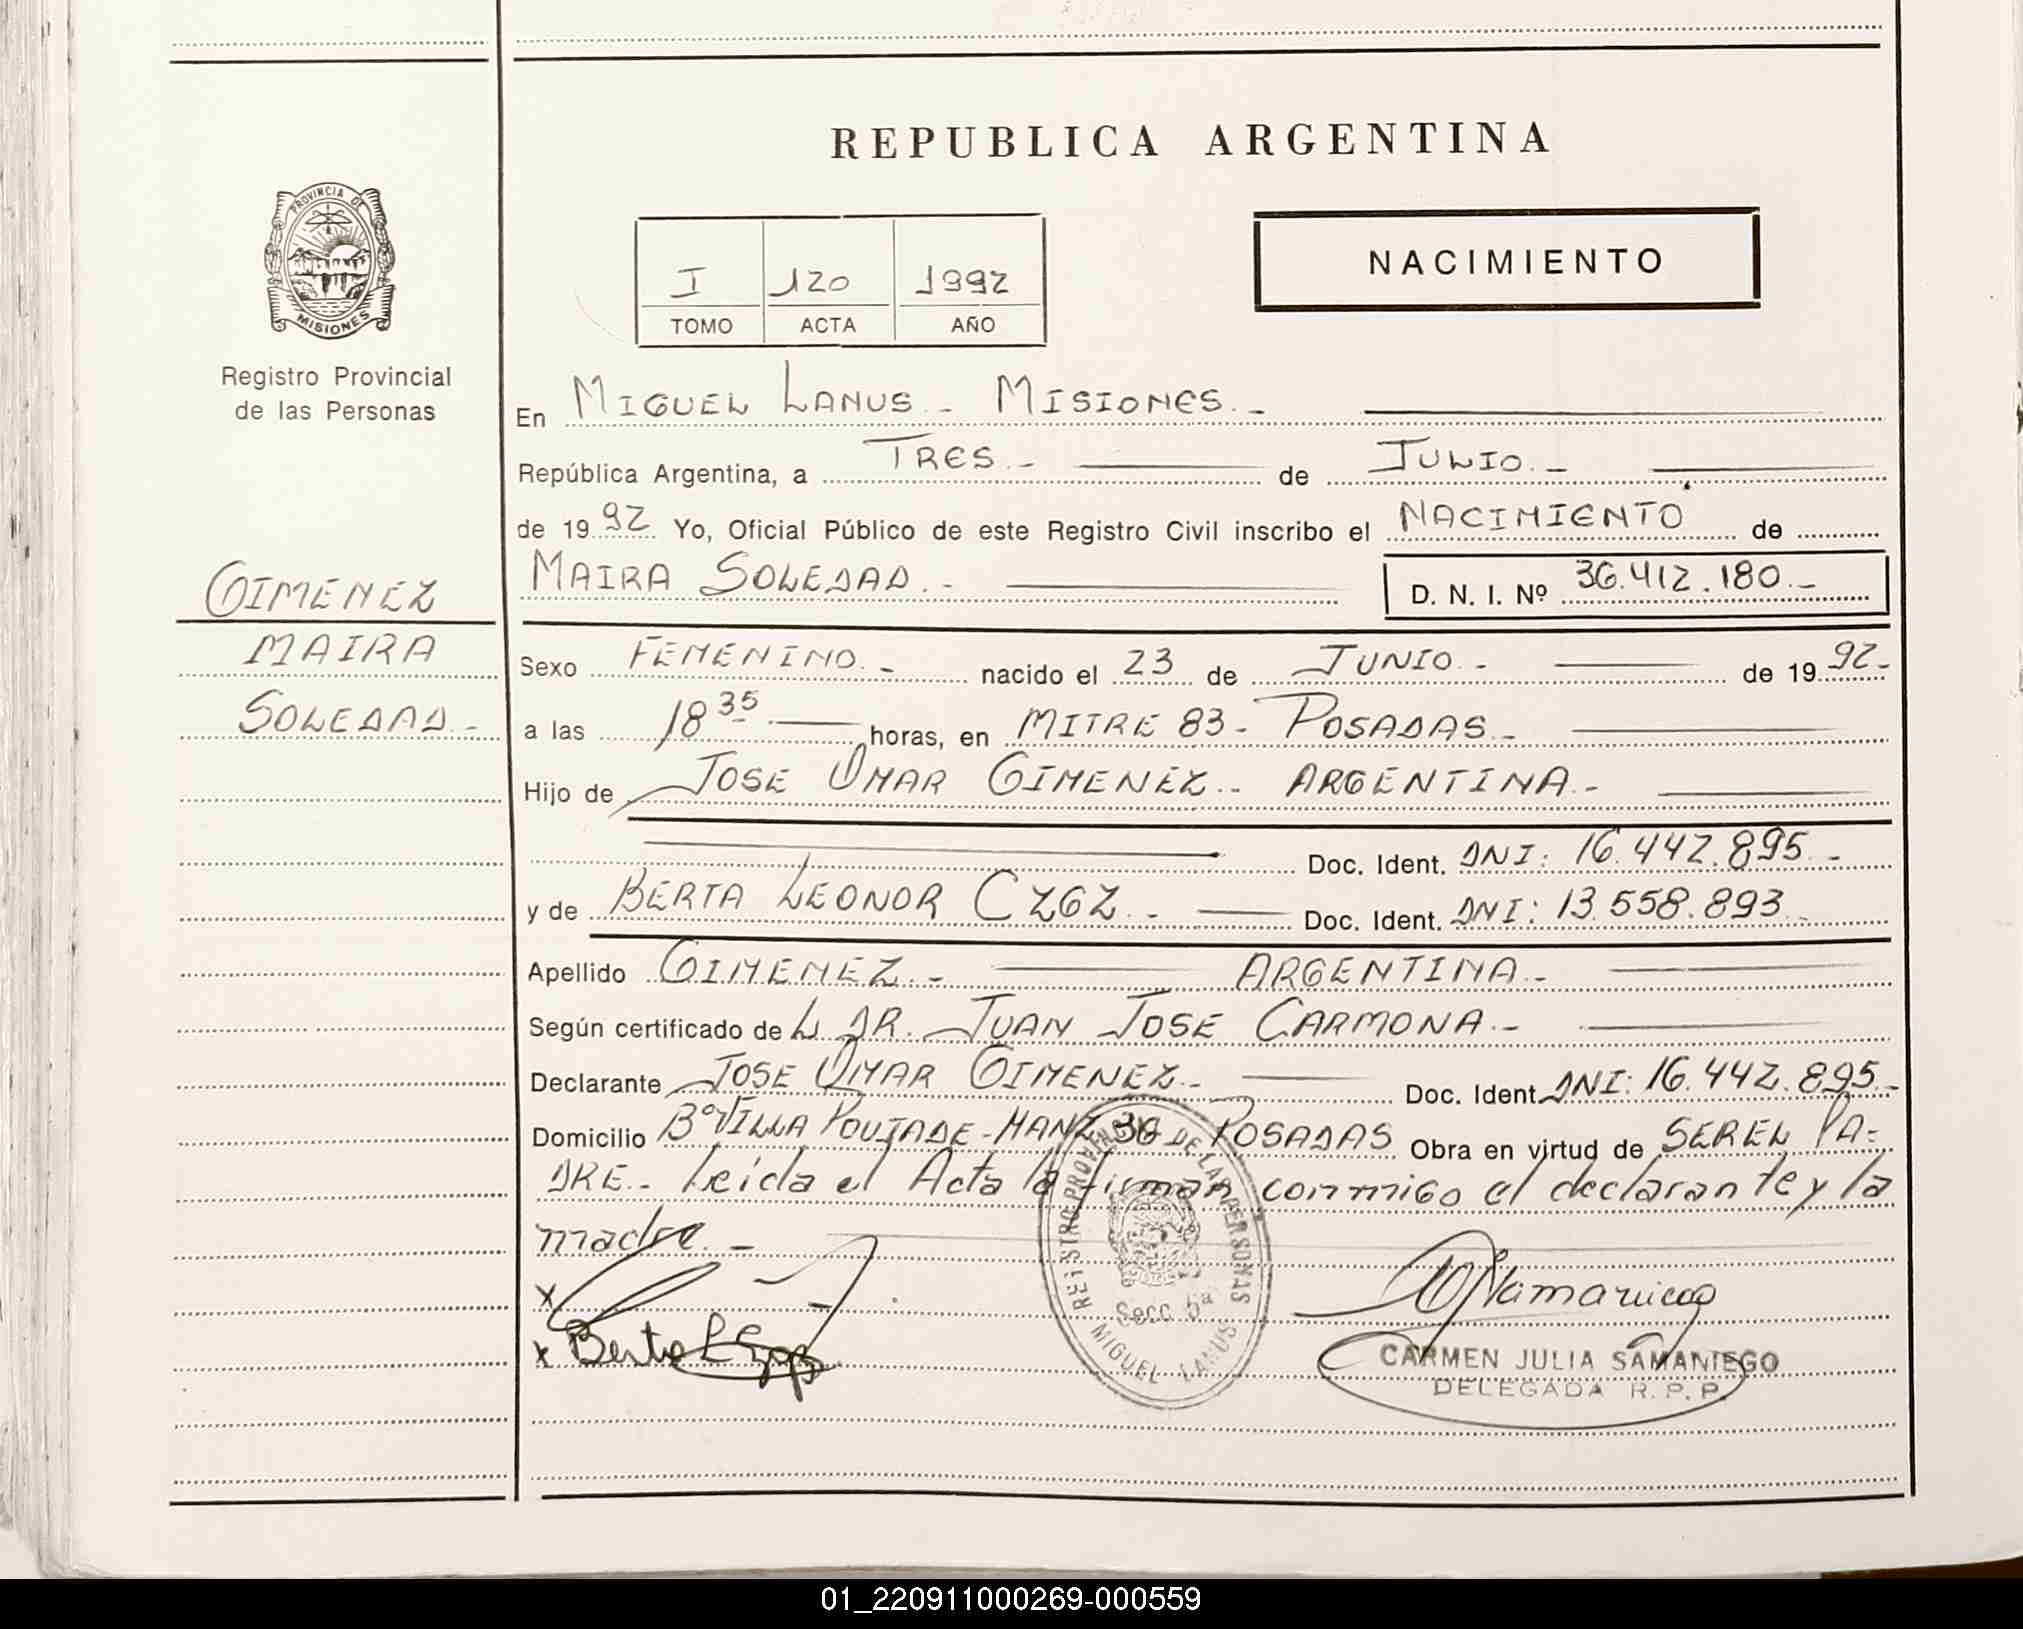 REPUBLICA ARGENTINA
PROVINCIA DE
MISIONES
Registro Provincial
de las Personas
I 120 1992
TOMO ACTA AÑO
NACIMIENTO
En MIGUEL LANUS - MISIONES.-
República Argentina, a TRES.- de JUNIO.-
de 1992 Yo, Oficial Público de este Registro Civil inscribo el NACIMIENTO de
MAIRA SOLEDAD.- D. N. I. Nº 36.412.180.-
GIMENEZ
MAIRA
SOLEDAD.-
Sexo FEMENINO.- nacido el 23 de JUNIO.- de 1992.-
a las 18 35 horas, en MITRE 83 - POSADAS.-
Hijo de JOSE OMAR GIMENEZ.- ARGENTINA.-
Doc. Ident. DNI: 16.442.895.-
y de BERTA LEONOR CZGZ.- Doc. Ident. DNI: 13.558.893.-
Apellido GIMENEZ.- ARGENTINA.-
Según certificado de L DR. JUAN JOSE CARMONA.-
Declarante JOSE OMAR GIMENEZ.- Doc. Ident. DNI: 16.442.895.-
Domicilio Bº VILLA POUJADE - MANZ 36 DE POSADAS Obra en virtud de SER EL PA-
DRE.- Leida el Acta la firman conmigo el declarante y la
madre.-
x
x Berta L
REGISTRO PROVINCIAL DE LAS PERSONAS
Secc 5ª
MIGUEL LANUS
CARMEN JULIA SAMANIEGO
DELEGADA R. P. P.
01_220911000269-000559